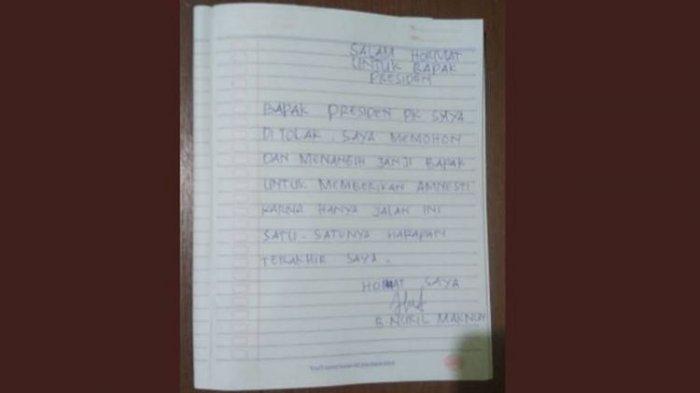 SALAM HORMAT
UNTUK BAPAK
PRESIDEN
BAPAK PRESIDEN PK SAYA
DI TOLAK. SAYA MEMOHON
DAN MENANGIH JANJI BAPAK
UNTUK MEMBERIKAN AMNESTI
KARNA HANYA JALAN INI
SATU-SATUNYA HARAPAN
TERAKHIR SAYA.
HORMAT SAYA
B. NURIL MAKNUN